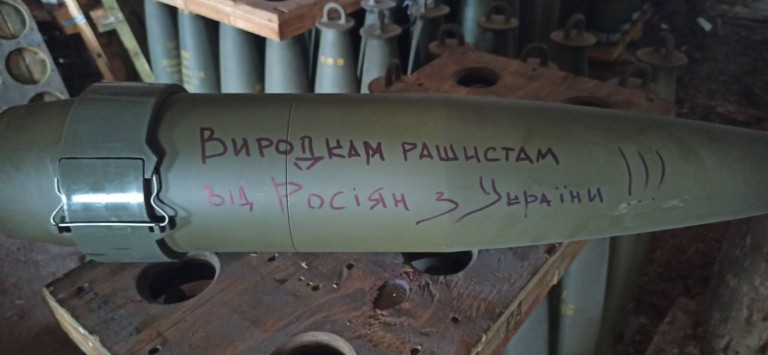 Виродкам рашистам )))
від Росіян з України